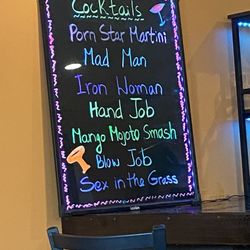 Cocktails
Porn Star Martini
Mad Man
Iron Woman
Hand Job
Mango Mojoto Smash
Blow Job
Sex in the Grass